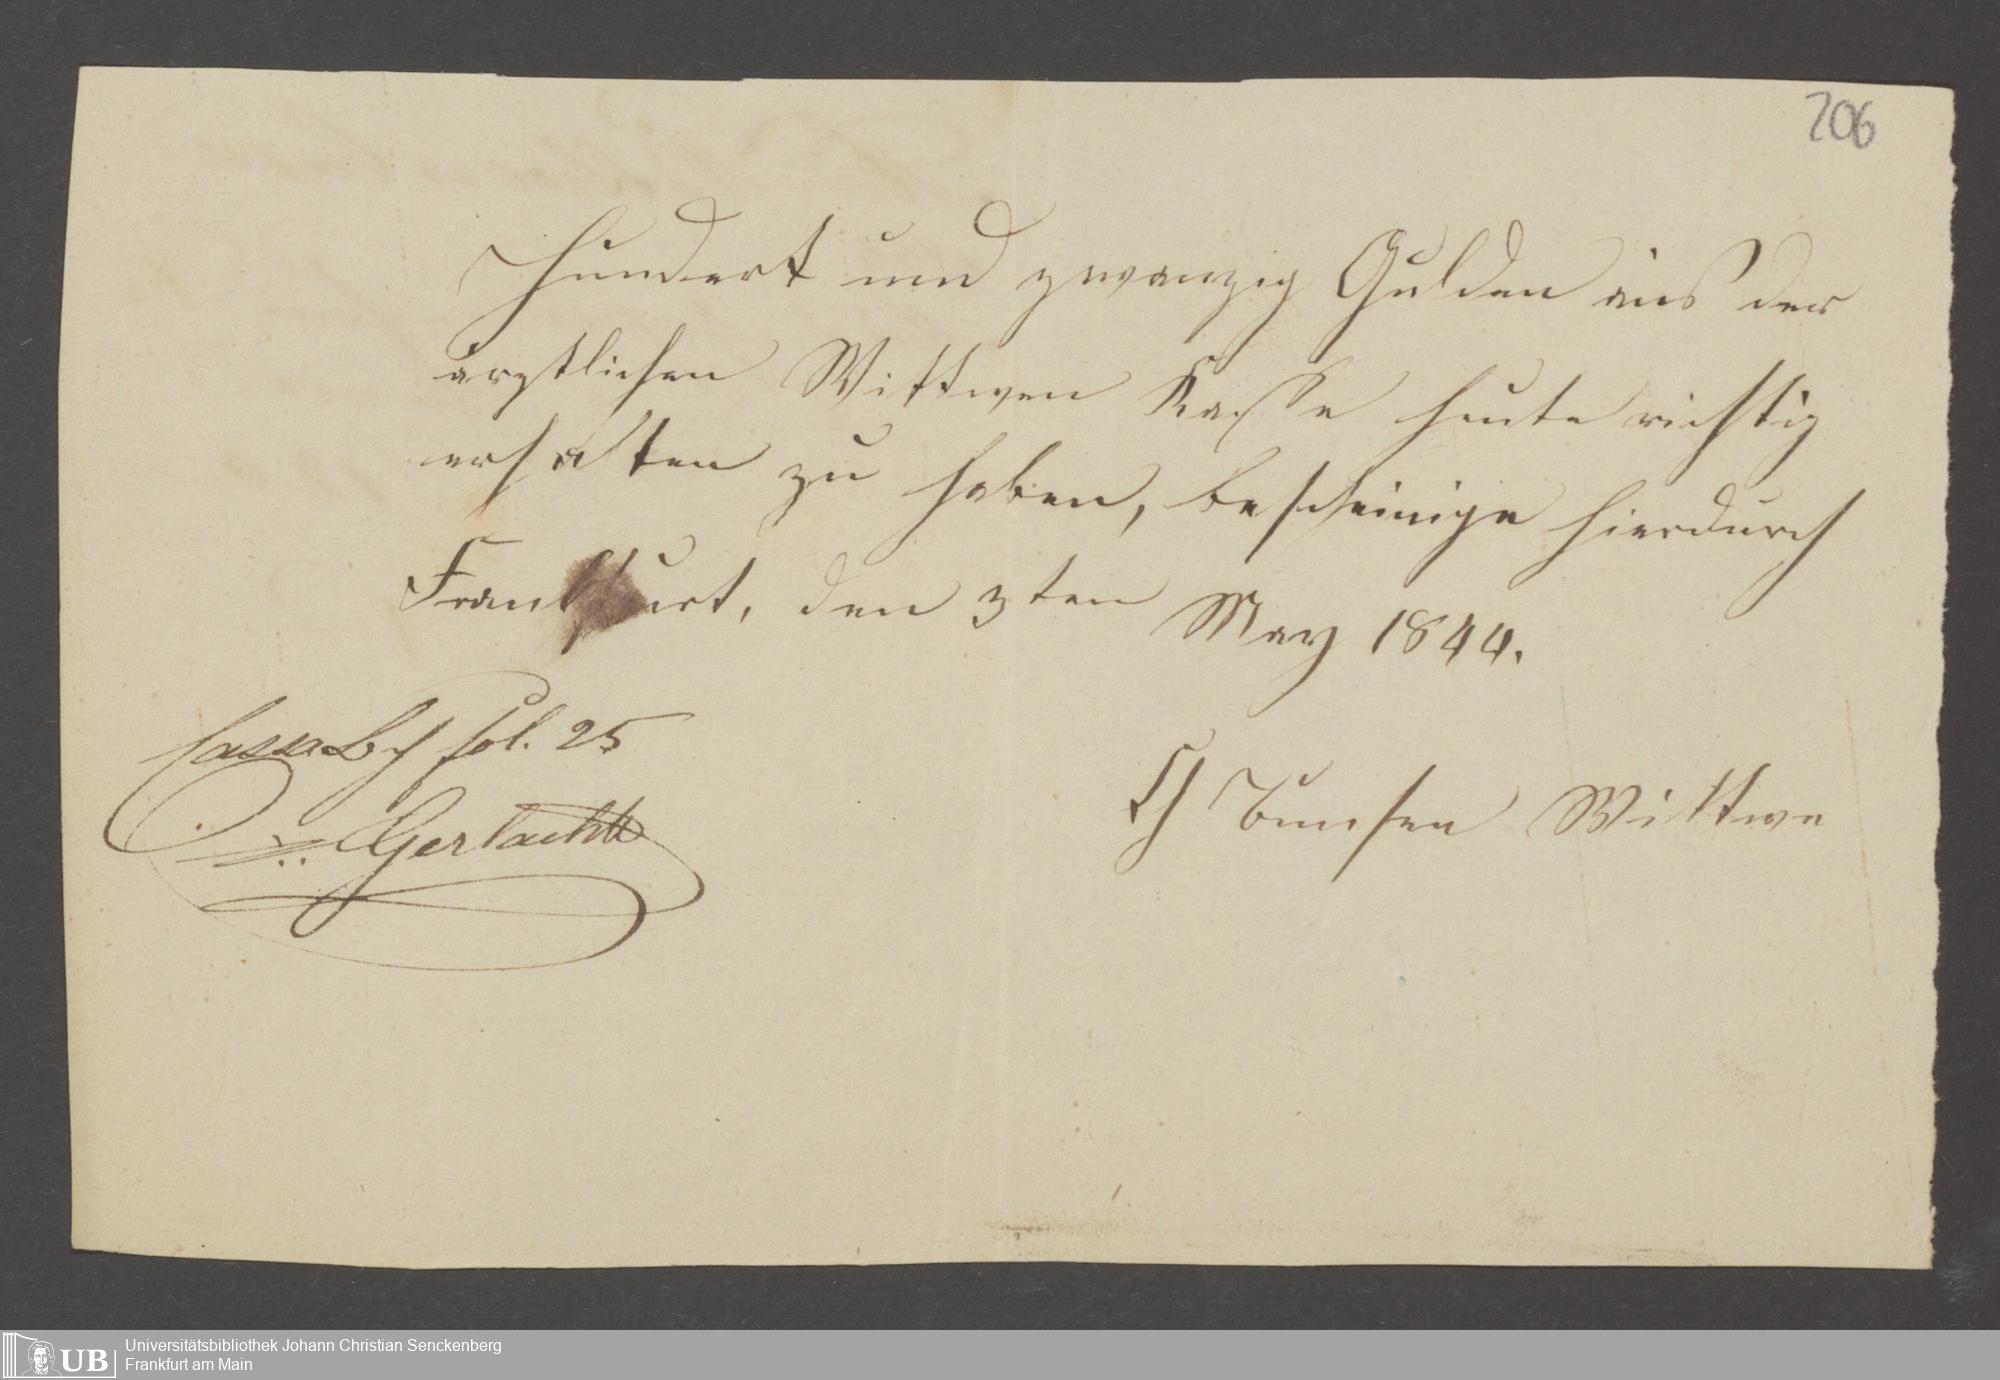 206
Hundert und zwanzig Gulden aus der
ärztlichen Wittwen Kasse heute richtig
erhalten zu haben, bescheinige hierdurch
Frankfurt, den 3ten May 1844.
CassaBch fol. 25
Ch Bunsen Wittwe
Gerlach
Universitätsbibliothek Johann Christian Senckenberg
UB Frankfurt am Main